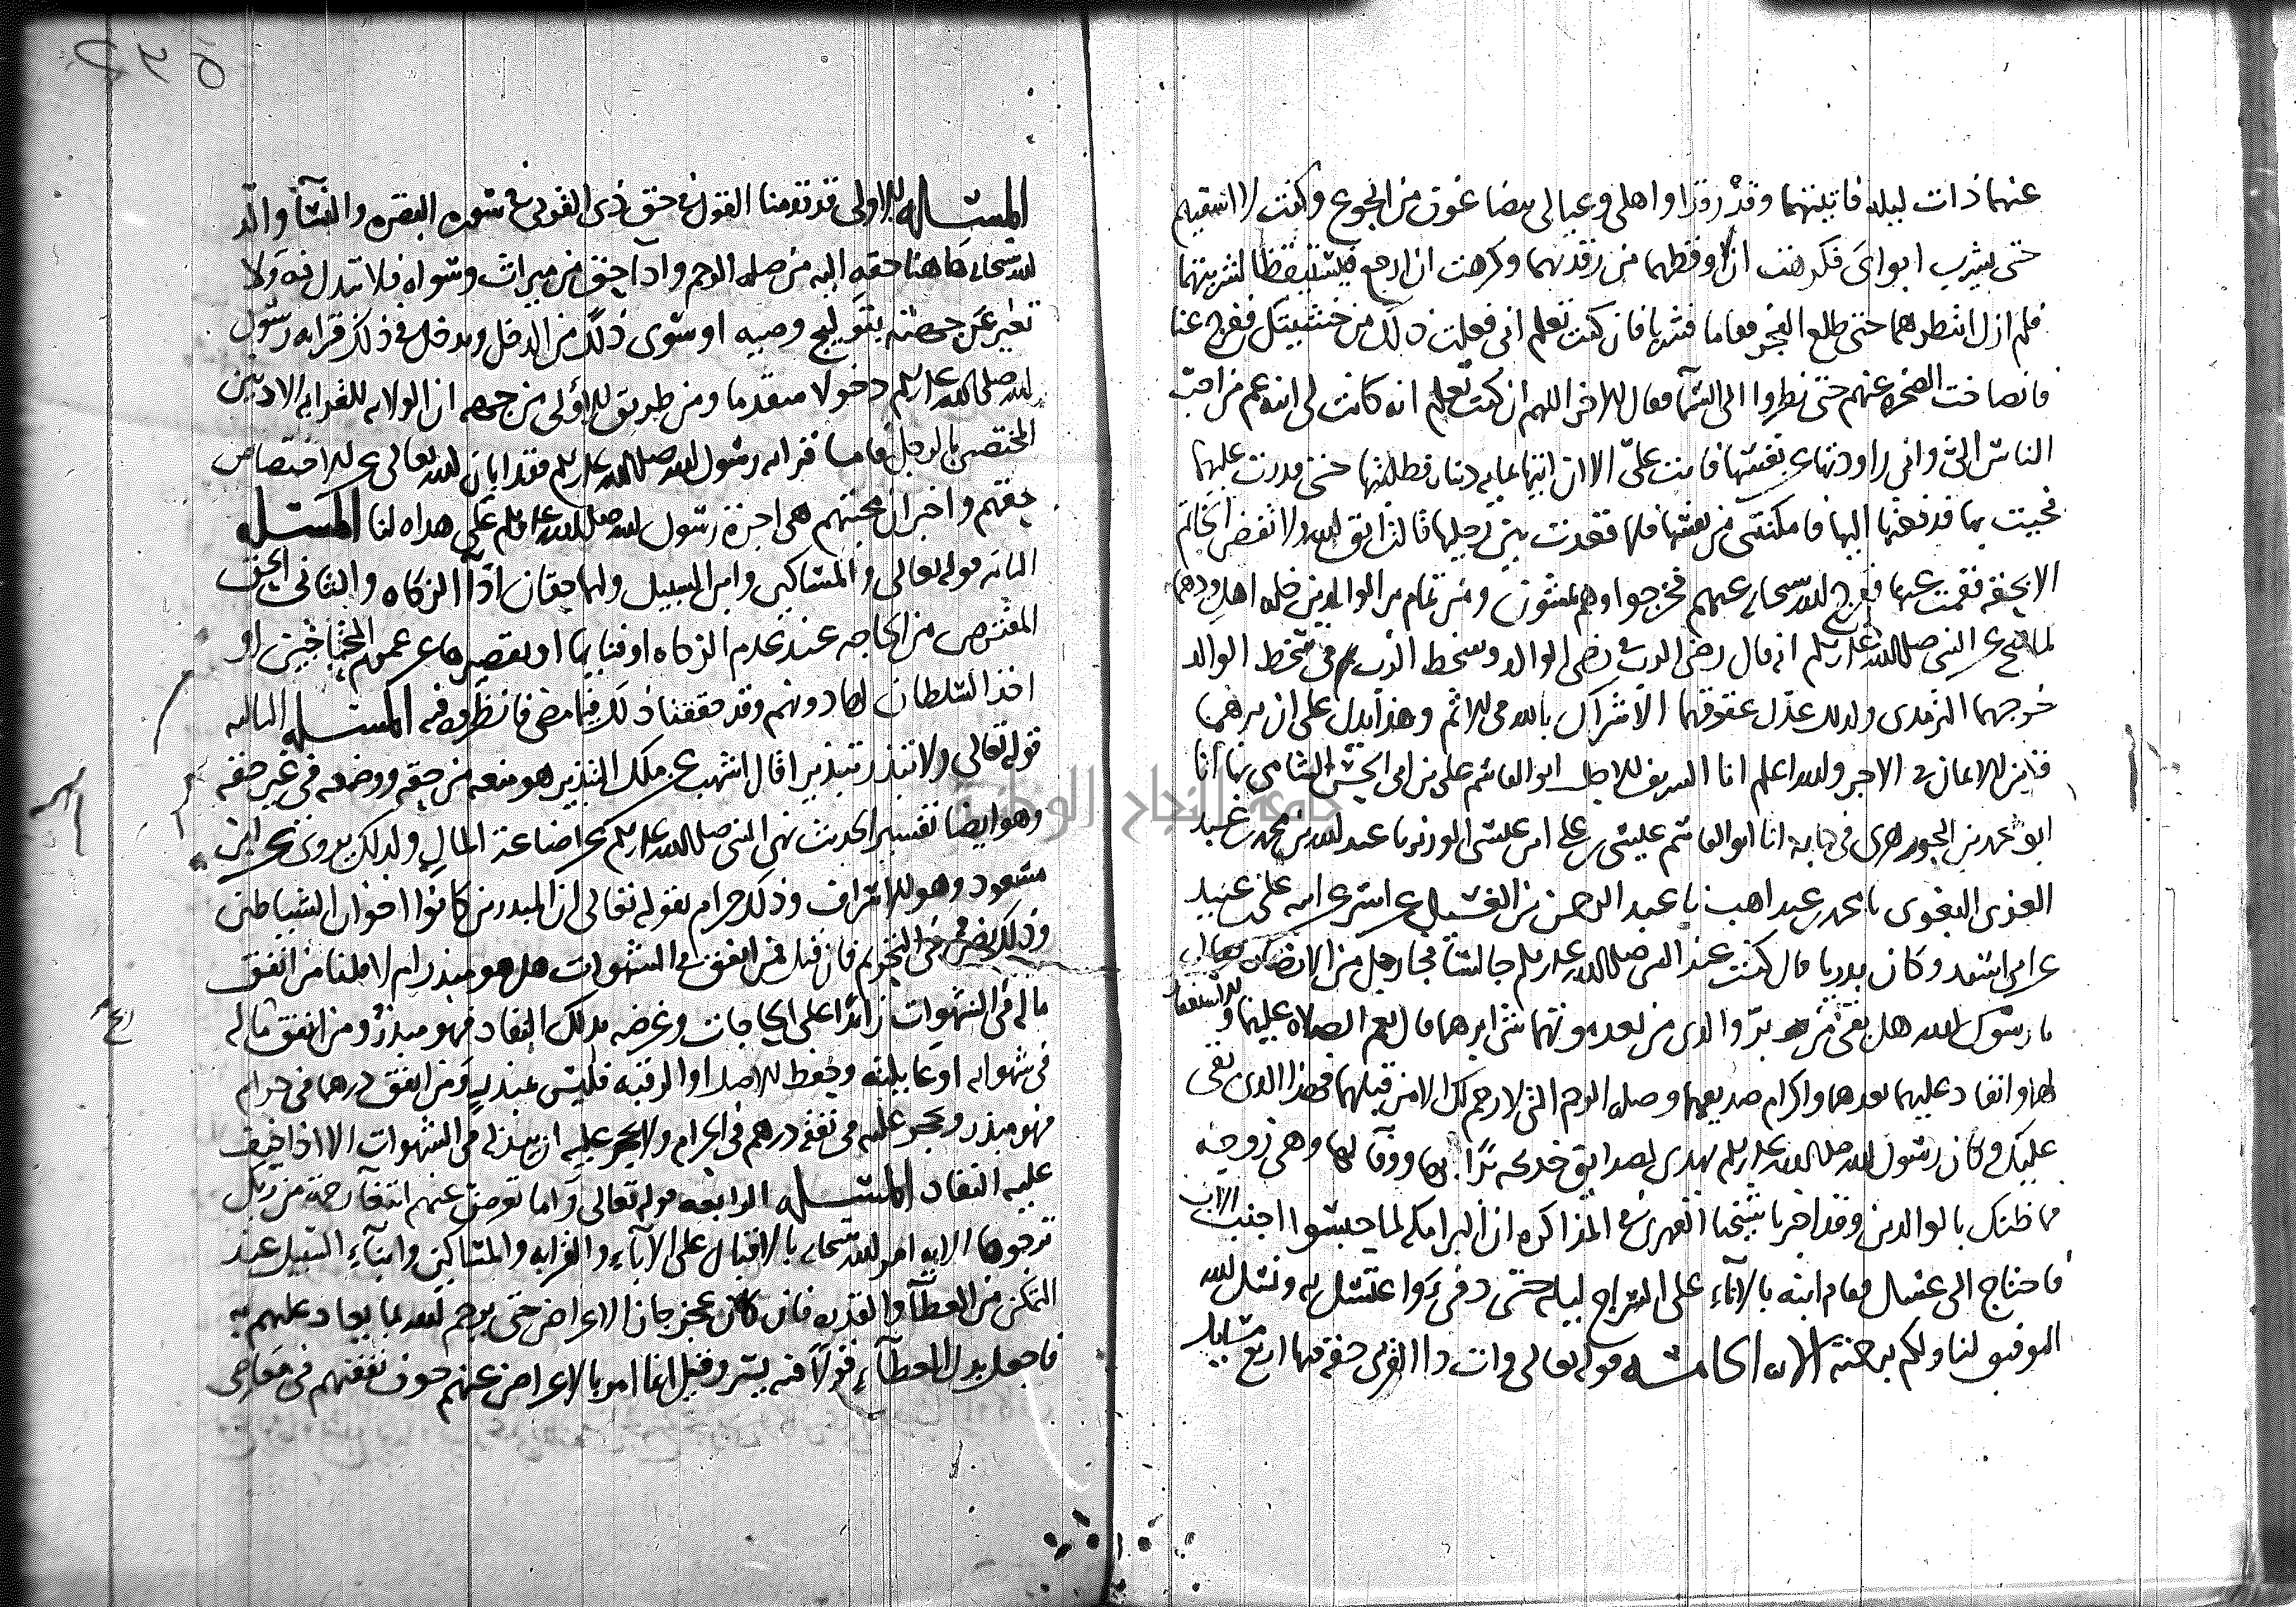 عنهما ذات ليله فاتيتهما وقد رقدا واهلي وعيالي يتضاغون من الجوع وكنت لا اسقيهم
حتى يشرب ابواي فكرهت ان اوقظهما من رقدتهما وكرهت ان ارجع فيستيقظا لشربتهما
فلم ازل انتظرهما حتى طلع الفجر فقاما فشربا فان كنت تعلم اني فعلت ذلك من خشيتك ففرج عنا
فانصاخت الصخرة عنهم حتى نظروا الى السما فقال الاخر اللهم ان كنت تعلم انه كانت لي ابنة عم من احب
الناس الي واني راودتها عن نفسها فابت علي الا ان اتيها بمايه دينار فطلبتها حتى قدرت عليها
فجيت بها فدفعتها اليها فامكنتني من نفسها فلما قعدت بين رجليها قالت اتق الله ولا تفض الخاتم
الا بحقه فقمت عنها ففرج الله سبحانه عنهم فخرجوا وهم يمشون ومن تمام بر الوالدين صله اهل ودهما
لما صح عن النبي صلى الله عليه وسلم انه قال رضى الرب في رضى الوالد وسخط الرب في سخط الوالد
خرجهما الترمذي ولذلك عدل عقوقهما الاشراك بالله في الاثم وهذا يدل على ان برهما
قرين الايمان في الاجر والله اعلم انا الشريف الاجل ابو القاسم علي بن ابي الجن الشامي بها انا
ابو محمد بن الجوهري في كتابه انا ابو القاسم عيسى بن علي ابن عيسى الوزير نا عبد الله بن محمد بن عبد
العزيز البغوي نا محمد بن عبد الوهب نا عبد الرحمن بن الغسيل عن اسيد عن ابيه علي بن عبيد
عن ابي اسيد وكان بدريا قال كنت عند النبي صلى الله عليه وسلم جالسا فجا رجل من الانصار فقال
يا رسول الله هل بقي من بر والدي من بعد موتهما شي ابرهما قال نعم الصلاة عليهما والاستغفار
لهما وانفاد عليهما بعدهما واكرام صديقهما وصله الرحم التي لا رحم لك الا من قبلهما فهذا الذي بقي
عليك وكان رسول الله صلى الله عليه وسلم يهدي لصدايق خديجه برا بها ووفا لها وهي زوجه
فما ظنك بالوالدين وقد اخبرنا شيخنا الفهري في المذاكره ان البرامكه لما حبسوا اجنب الاب
فاحتاج الى غسل فقام ابنه بالاناء على السراج ليله حتى دفئ واغتسل به ونسل الله
التوفيق لنا ولكم برحمته الاية الخامسة قوله تعالى وات ذا القربى حقه فيها اربع مسايل
المسئله الاولى قد تقدمنا القول في حق ذي القربى في سورة البقره والنسآ واكد
الله سبحانه هاهنا حقه اليه من صله الرحم واداء حق من ميراث وسواه فلا تبدل فيه ولا
تغير عن جهته بتوليج وصيه او سوى ذلك من الدخل ويدخل في ذلك قرابه رسول
الله صلى الله عليه وسلم دخولا متقدما ومن طريق الاولى من جهه ان الولايه للقرابه الادنين
المختصين بالرجل فاما قرابه رسول الله صلى الله عليه وسلم فقد ابان الله تعالى على الاختصاص
حقهم واخبر ان محبتهم هي اجرة رسول الله صلى الله عليه وسلم على هداه لنا المسئله
الثانيه قوله تعالى والمساكين وابن السبيل ولهما حقان اداآ الزكاه والثاني الحق
المفترض من الحاجه عند عدم الزكاه او فنايها او تقصيرها عن عموم المحتاجين او
اخذ السلطان لها دونهم وقد حققنا ذلك فيما مضى فانظروه فيه المسئله الثالثه
قوله تعالى ولا تبذر تبذيرا قال اشهب عن ملك التبذير هو منعه من حقه ووضعه في غير حقه
وهو ايضا تفسير الحديث نهى النبي صلى الله عليه وسلم عن اضاعة المال ولذلك يروى عن ابن
مسعود وهو الاسراف وذلك حرام بقوله تعالى ان المبذرين كانوا اخوان الشياطين
وذلك نص في التحريم فان قيل فمن انفق في الشهوات هل هو مبذر ام لا قلنا من انفق
ماله في الشهوات زائدا على الحاجات وعرضه بذلك للنفاد فهو مبذر ومن انفق ماله
في شهواته او عا بليته وحفظ الاصل او الرقبه فليس عبذر ومن انفق درهما في حرام
فهو مبذر ويحجر عليه في نفقه درهم في الحرام ولا يحجر عليه ان يبذله في الشهوات الا اذا خيف
عليه النفاد المسئله الرابعه قوله تعالى واما تعرضن عنهم ابتغآ رحمة من ربك
ترجوها الايه امر الله سبحانه بالاقبال على الابآء والقرابه والمساكين وابنآء السبيل عند
التمكن من العطآء والقدره فان كان عجز جاز الاعراض حتى يرحم الله بما يعاد عليهم به
فاجعل بدل العطآء قولا فيه يسر وقيل انما امر بالاعراض عنهم خوف نفقتهم في معاصي